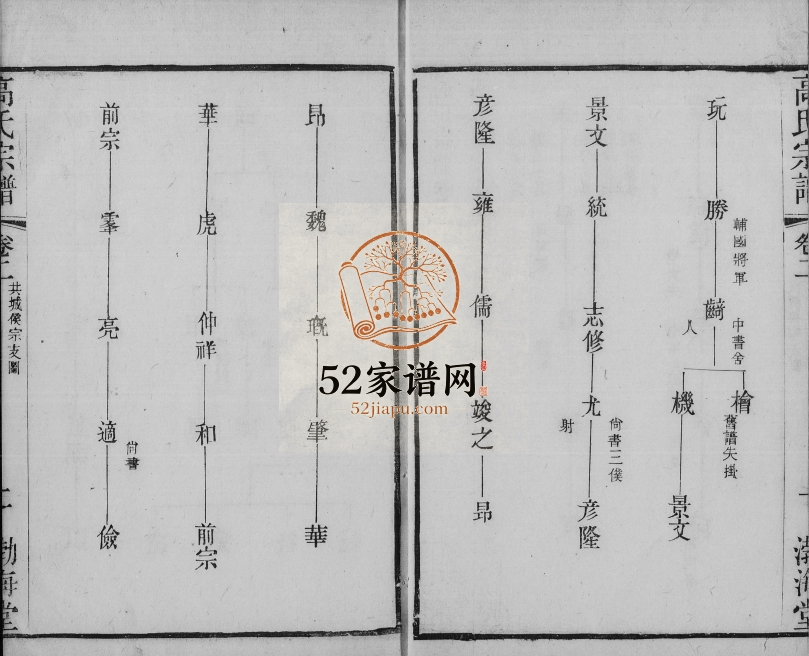 高氏宗譜 卷二 渤海堂
玩 勝 輔國將軍 齮 中書舍人 檜 舊譜失掛 機 景文
景文 統 志修 尤 尙書三僕射 彦隆
彦隆 雍 儒 竣之 昂
昂 魏 瓶 肇 華
華 虎 仲祥 和 前宗
前宗 羣 亮 適 尙書 儉
高氏宗譜 卷二 共城侯宗支圖 二 渤海堂
52家谱网
52jiapu.com